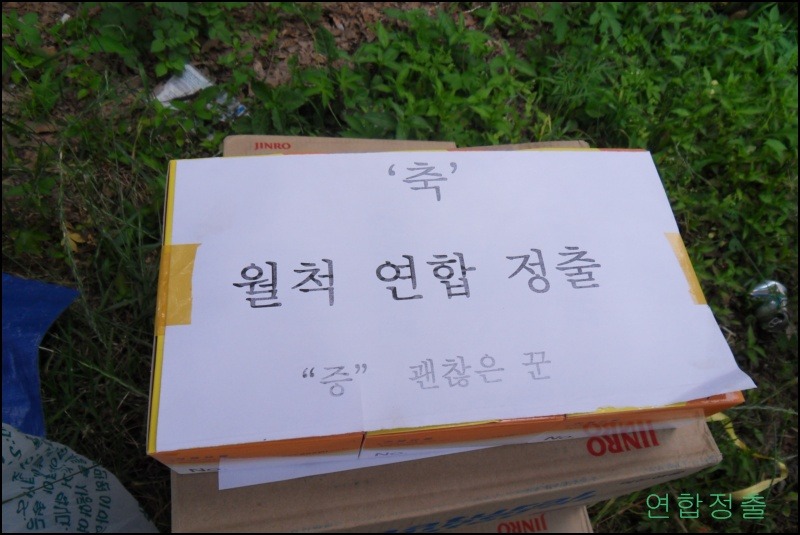 JINRO
‘축’
월척 연합 정출
“증” 괜찮은 꾼
No.
No.
JINRO
JINRO
연합정출